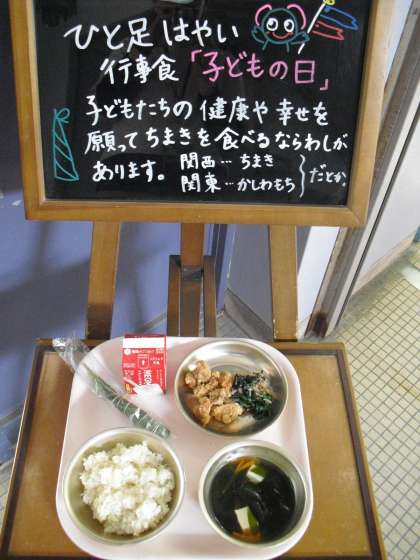 ひと足はやい
行事食「子どもの日」
子どもたちの健康や幸せを
願ってちまきを食べるならわしが
あります。関西…ちまき
関東…かしわもち
だとか。